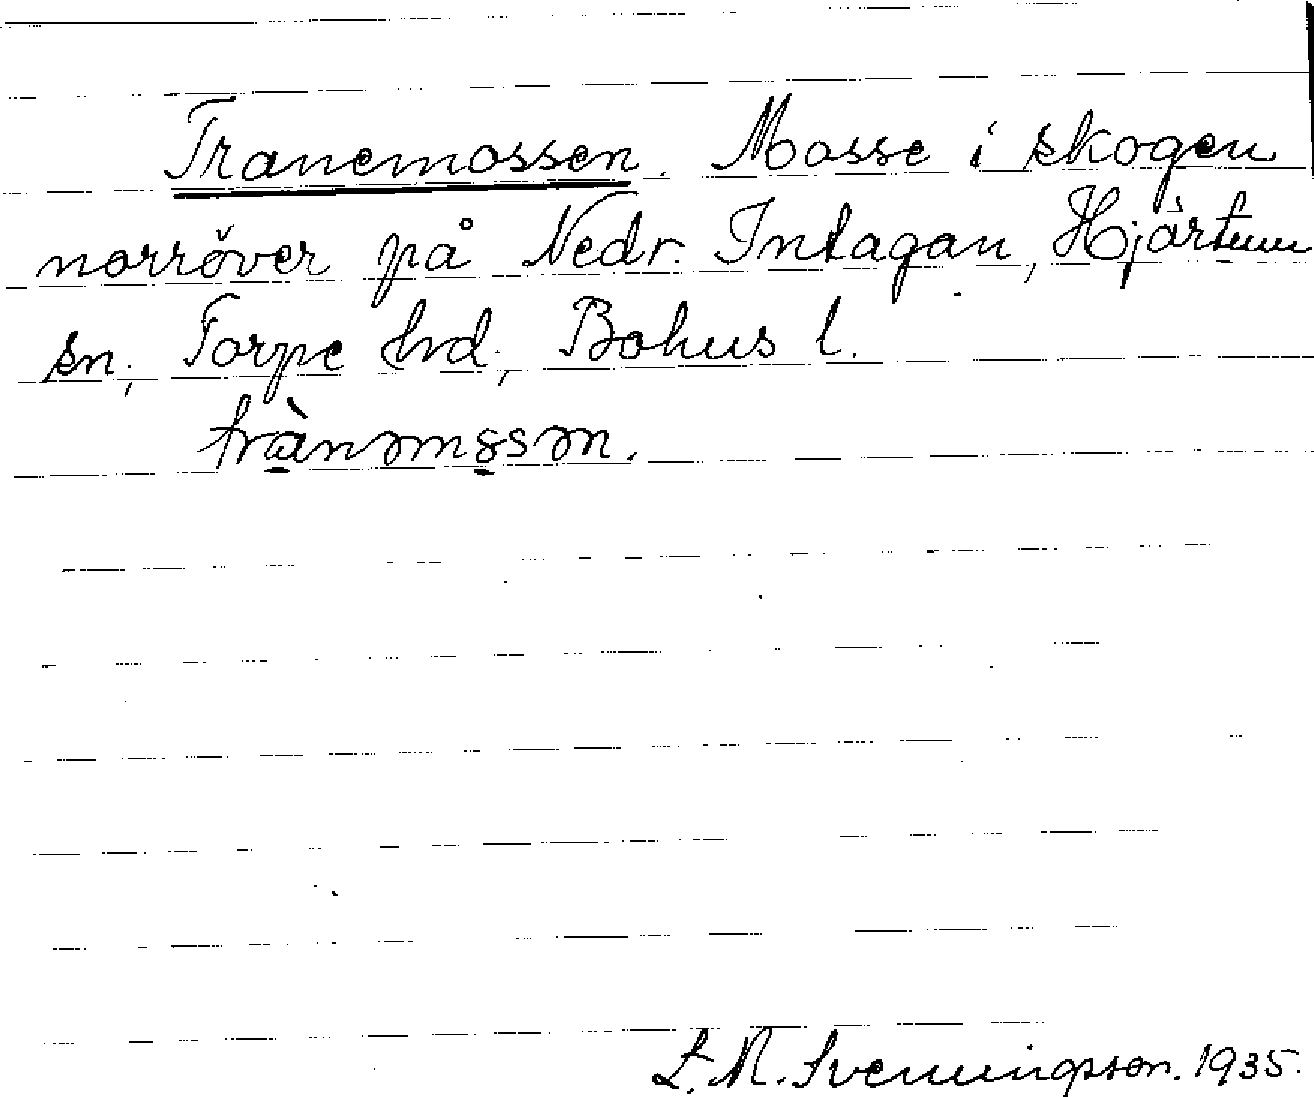 Tranemossen. Mosse i skogen
norröver på Nedr. Intagan, Hjärtum
sn, Torpe hd, Bohus l.
trànəmɷsən.
L. M. Svenningsson. 1935.